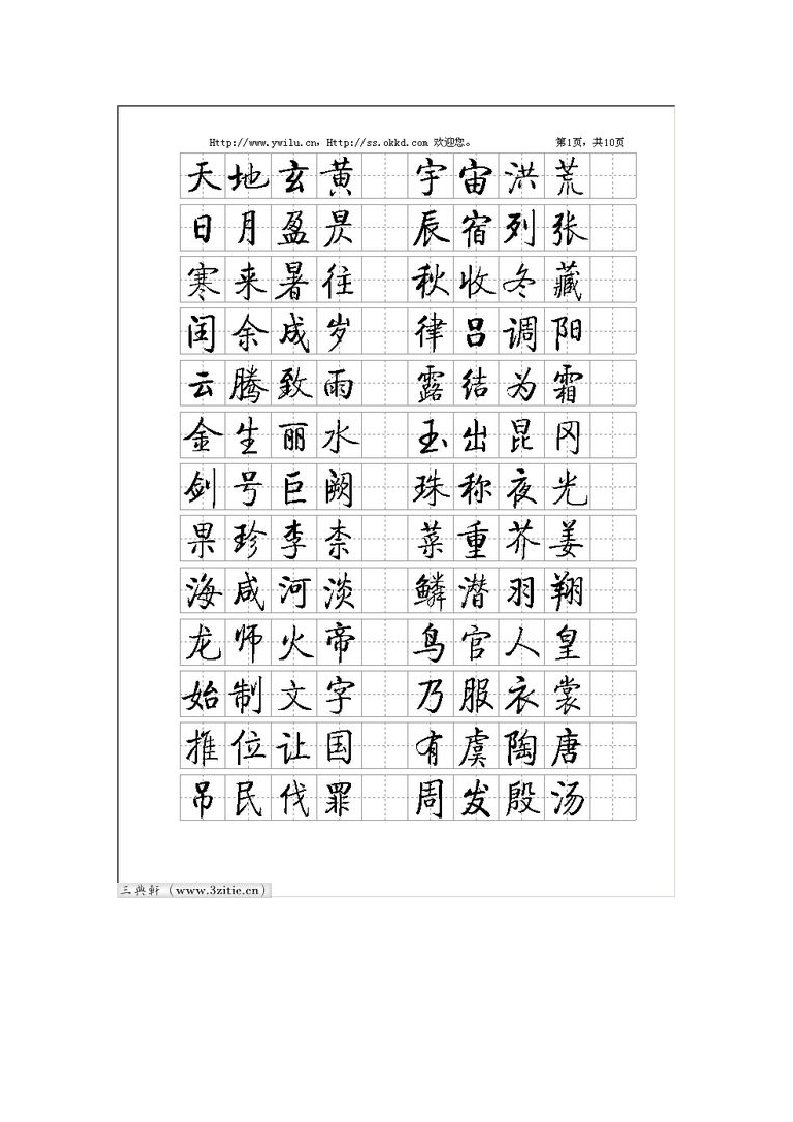 Http://www.ywilu.cn, Http://ss.okkd.com 欢迎您。 第1页, 共10页
天地玄黄 宇宙洪荒
日月盈昃 辰宿列张
寒来暑往 秋收冬藏
闰余成岁 律吕调阳
云腾致雨 露结为霜
金生丽水 玉出昆冈
剑号巨阙 珠称夜光
果珍李柰 菜重芥姜
海咸河淡 鳞潜羽翔
龙师火帝 鸟官人皇
始制文字 乃服衣裳
推位让国 有虞陶唐
吊民伐罪 周发殷汤
三典軒 (www.3zitie.cn)